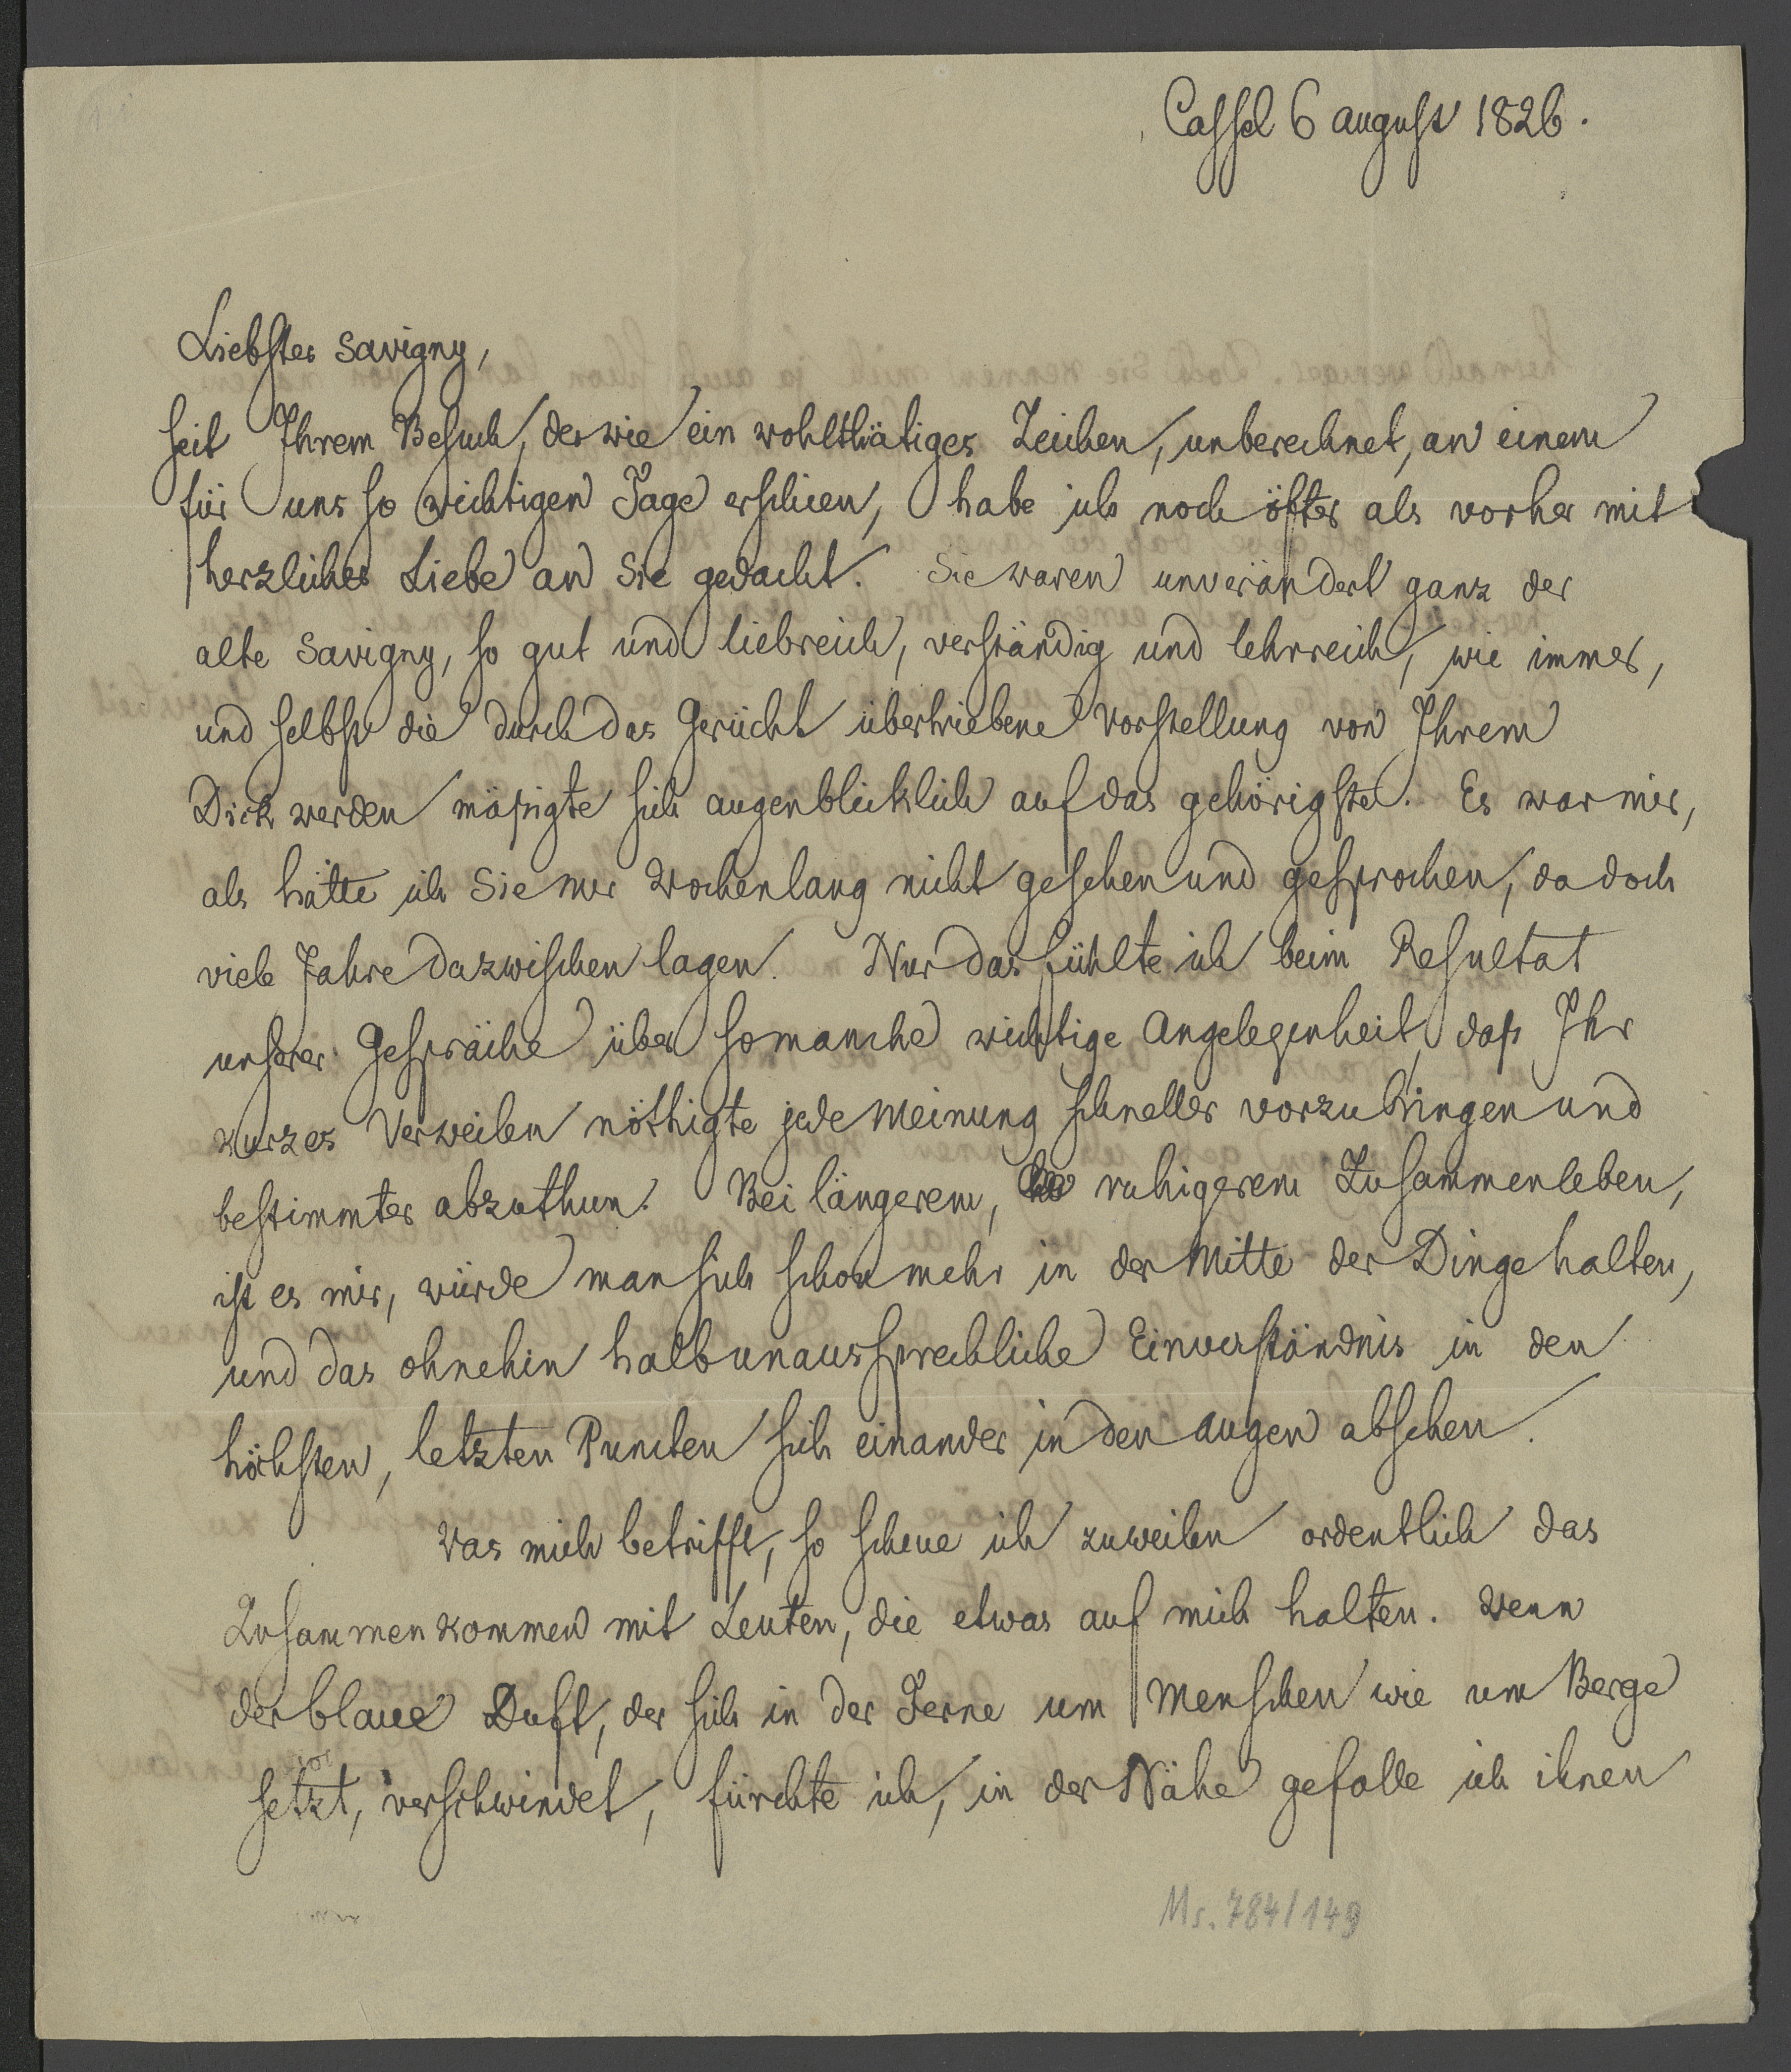 Cassel 6 august 1826.
Liebster Savigny,
seit Ihrem Besuch, der wie ein wohlthätiges Zeichen, unberechnet, an einem
für uns so wichtigen Tage erschien, habe ich noch öfter als vorher mit
herzlicher Liebe an Sie gedacht. Sie waren unverändert ganz der
alte Savigny, so gut und liebreich, verständig und lehrreich, wie immer,
und selbst die durch das Gerücht übertriebene Vorstellung von Ihrem
Dick werden mäßigte sich augenblicklich auf das gehörigste. Es war mir,
als hätte ich Sie nur Wochenlang nicht gesehen und gesprochen, da doch
viele Jahre dazwischen lagen. Nur das fühlte ich beim Resultat
unserer Gespräche über so manche wichtige Angelegenheit, daß Ihr
kurzes Verweilen nöthigte jede Meinung schneller vorzubringen und
bestimmter abzuthun. Bei längerem, ruhigerem Zusammenleben,
ist es mir, würde man sich schon mehr in der Mitte der Dinge halten,
und das ohnehin halbunaussprechliche Einverständnis in den
höchsten, letzten Puncten sich einander in den augen absehen.
Was mich betrifft, so scheue ich zuweilen ordentlich das
Zusammenkommen mit Leuten, die etwas auf mich halten. Wenn
der blaue Duft, der sich in der Ferne um Menschen wie um Berge
setzt, verschwindet, fürchte ich, in der Nähe gefalle ich ihnen
Ms. 784/149